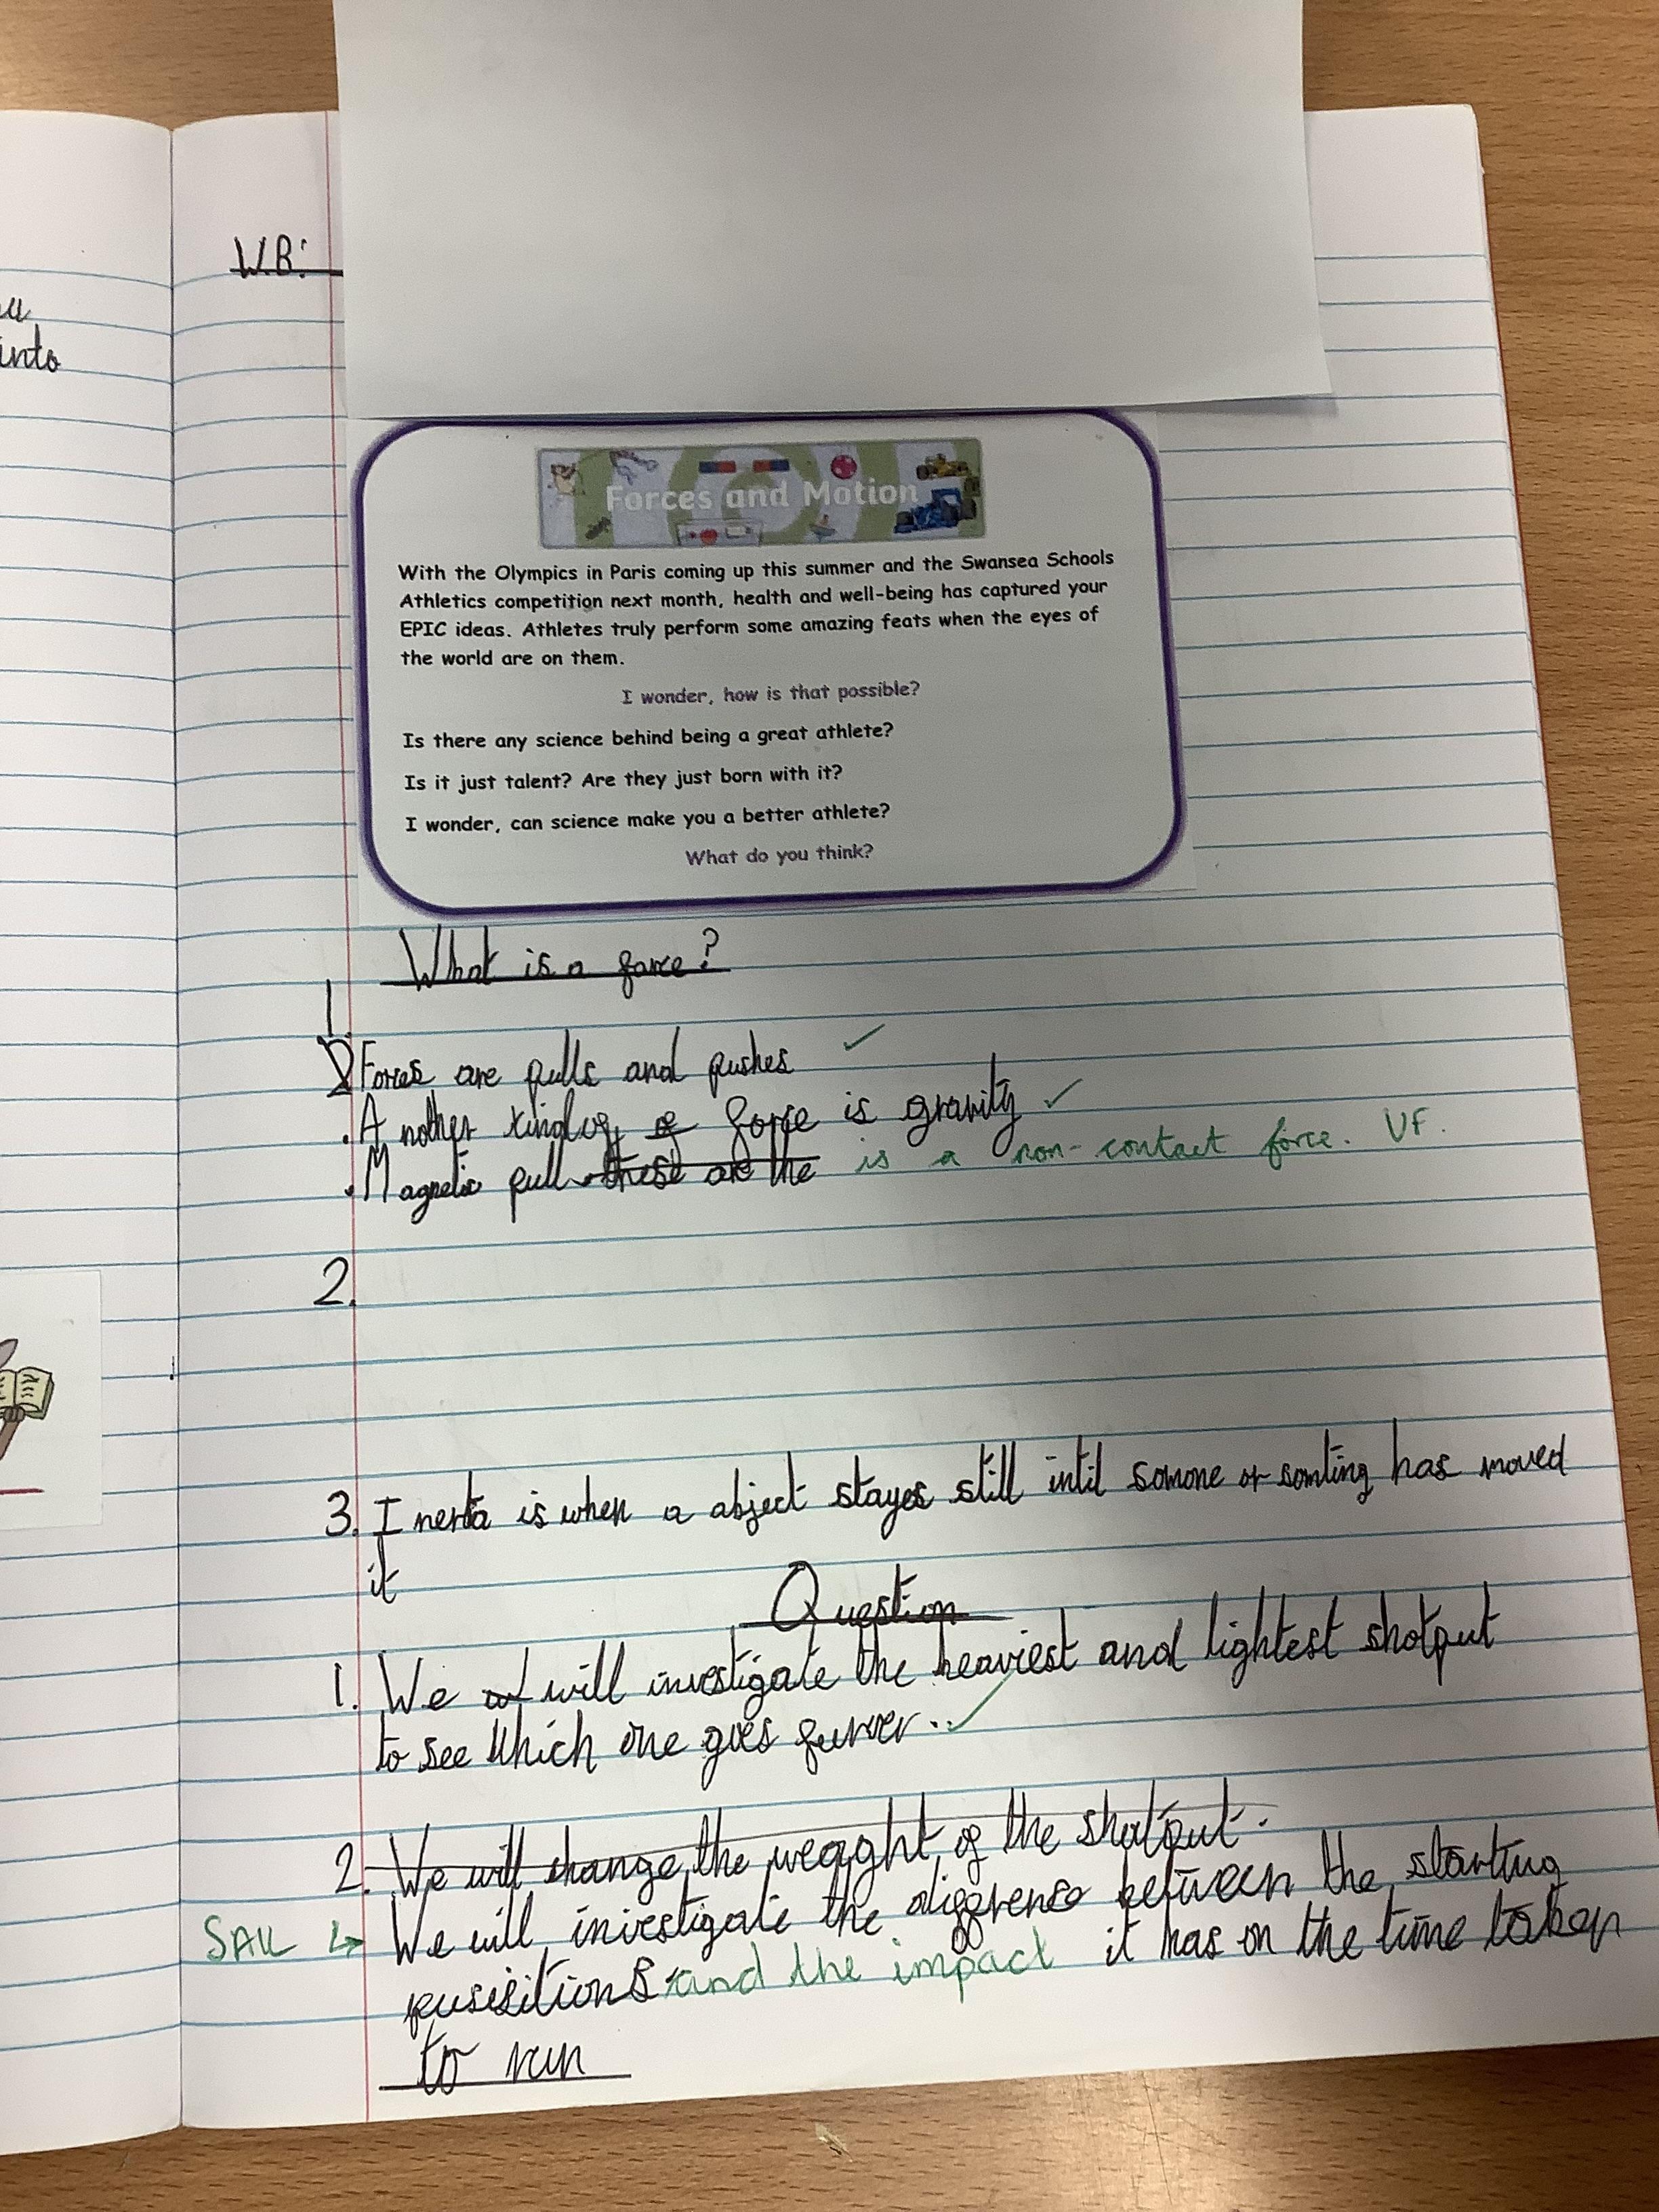 W.B:
all
into
Forces and Motion
With the Olympics in Paris coming up this summer and the Swansea Schools
Athletics competition next month, health and well-being has captured your
EPIC ideas. Athletes truly perform some amazing feats when the eyes of
the world are on them.
I wonder, how is that possible?
Is there any science behind being a great athlete?
Is it just talent? Are they just born with it?
I wonder, can science make you a better athlete?
What do you think?
What is a force?
1.
Forces are pulls and pushes
. Another kind of force is gravity
. Magnetic pull these are the is a non-contact force. VF.
2.
3. Inerta is when a abject stayes still intil somone or somting has moved
it
Question
1. We will investigate the heaviest and lightest shotput
to see which one goes furver.
2. We will change the weaght of the shotput.
SAIL ↳ We will investigate the differense between the starting
pusisitions and the impact it has on the time taken
to run